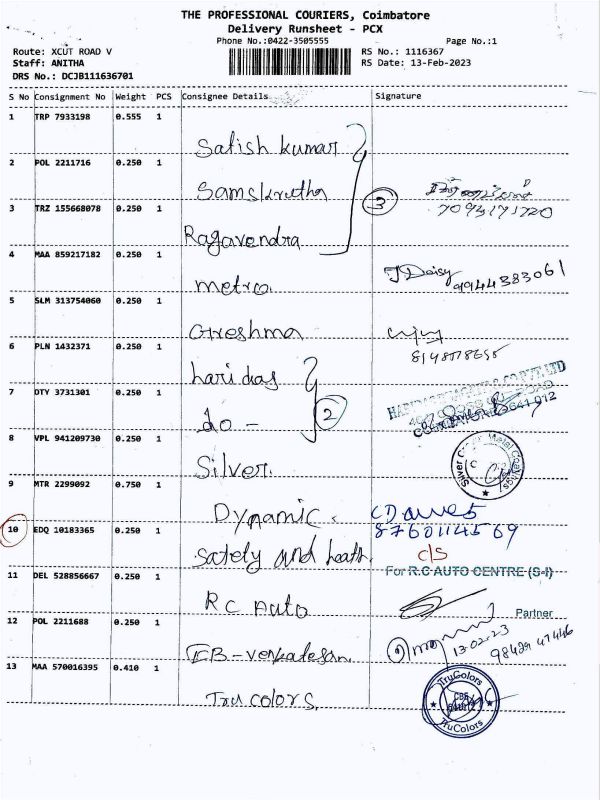 THE PROFESSIONAL COURIERS, Coimbatore
Delivery Runsheet - PCX
Phone No.:0422-3505555
Page No.:1
Route: XCUT ROAD V
RS No.: 1116367
Staff: ANITHA
RS Date: 13-Feb-2023
DRS No.: DCJB111636701
S No Consignment No Weight PCS Consignee Details Signature
1 TRP 7933198 0.555 1 Satish kumar
2 POL 2211716 0.250 1 Samskrutha
3
3 TRZ 155668078 0.250 1 Ragavendra
4 MAA 859217182 0.250 1 metro. J Daisy 9944383061
5 SLM 313754060 0.250 1 Greshma
6 PLN 1432371 0.250 1 haridas
7 DTY 3731301 0.250 1 do -
2
8 VPL 941209730 0.250 1 Silver.
9 MTR 2299092 0.750 1 Dynamic.
8760114569
10 EDQ 10183365 0.250 1 safely and heath. c/s
For R.C AUTO CENTRE (S-I)
11 DEL 528856667 0.250 1 RC Auto
Partner
12 POL 2211688 0.250 1 EB-venkatesan. 13.02.23
13 MAA 570016395 0.410 1 Tru colors.
TruColors
CBE
TruColors